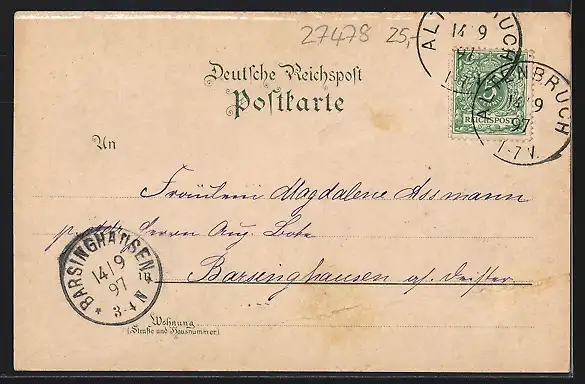 27478 25,-
ALTENBRUCH
14 9
97
1.-7 V.
ALTENBRUCH
14 9
97
1.-7 V.
5
REICHSPOST
Deutsche Reichspost
Postkarte
An
Fräulein Magdalene Assmann
p. Adr. Herrn Aug. Bote
in
Barsinghausen a/. Deister.
* BARSINGHAUSEN *
14 9
97
3-4 N
Wohnung
(Straße und Hausnummer)